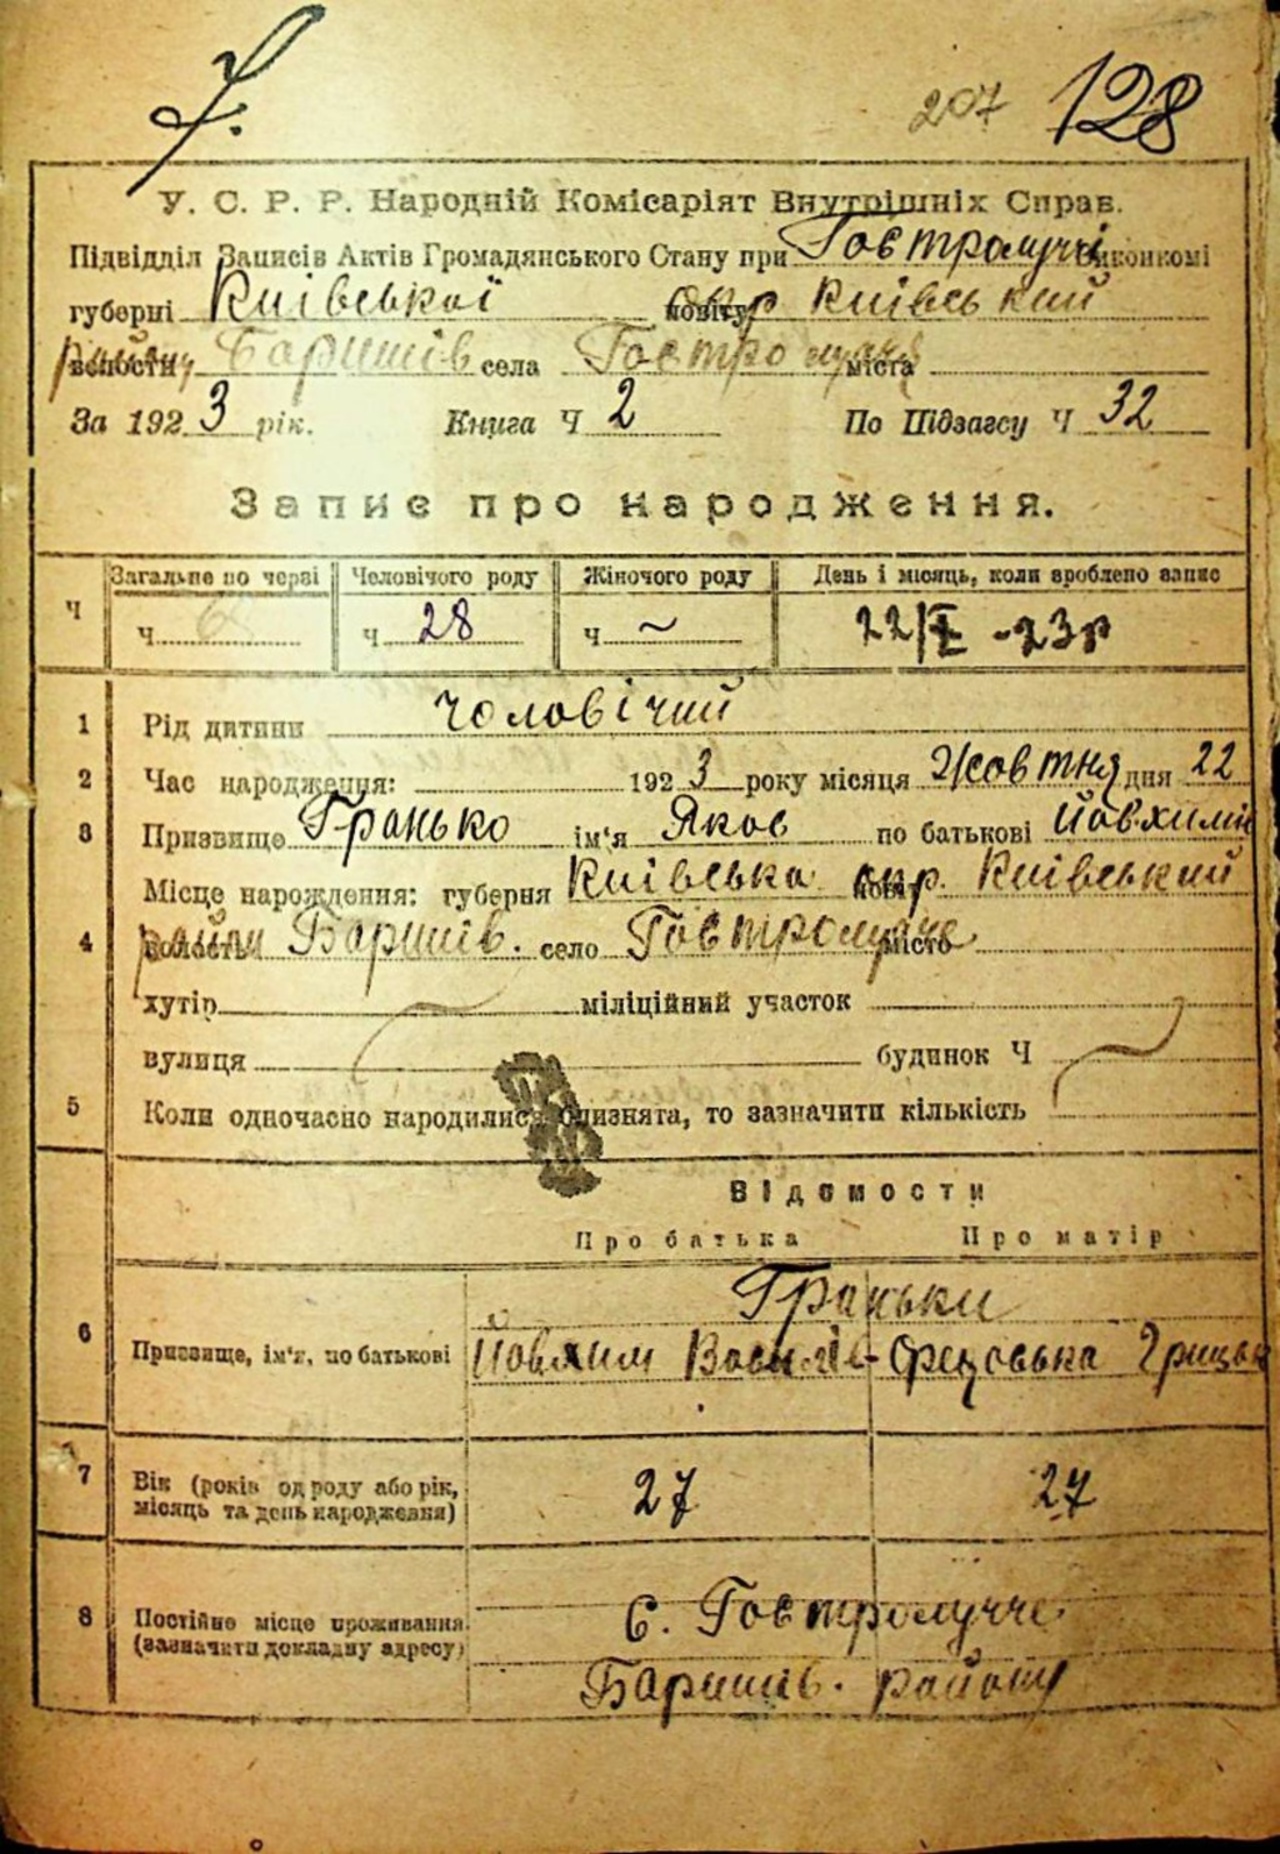 207 128
У. С. Р. Р. Народній Комісаріят Внутрішніх Справ.
Підвідділ Записів Актів Громадянського Стану при Гостролуччі виконкомі
губерні Київської повіту окр Київський
волости району Баришів села Гостролуччя міста
За 1923 рік. Книга Ч 2 По Підзагсу Ч 32
Запис про народження.
Ч Загальне по черзі Человічого роду Жіночого роду День і місяць, коли зроблено запис
Ч. Ч 28 Ч ~ 22/X -23р
1 Рід дитини чоловічий
2 Час народження: 1923 року місяця Жовтня дня 22
3 Призвище Гранько ім'я Яков по батькові Йовхимів
Місце нарождення: губерня Київська повіт окр. Київський
4 волость район Баришів. село Гостролучче місто
хутір міліційний участок
вулиця будинок Ч
5 Коли одночасно народилися близнята, то зазначити кількість
Відомости
Про батька Про матір
Граньки
6 Призвище, ім'я, по батькові Йовхим Василів-
7 Вік (років од роду або рік, місяць та день народження) 27 27
8 Постійне місце проживання (зазначити докладну адресу) с. Гостролучче
Баришів. району